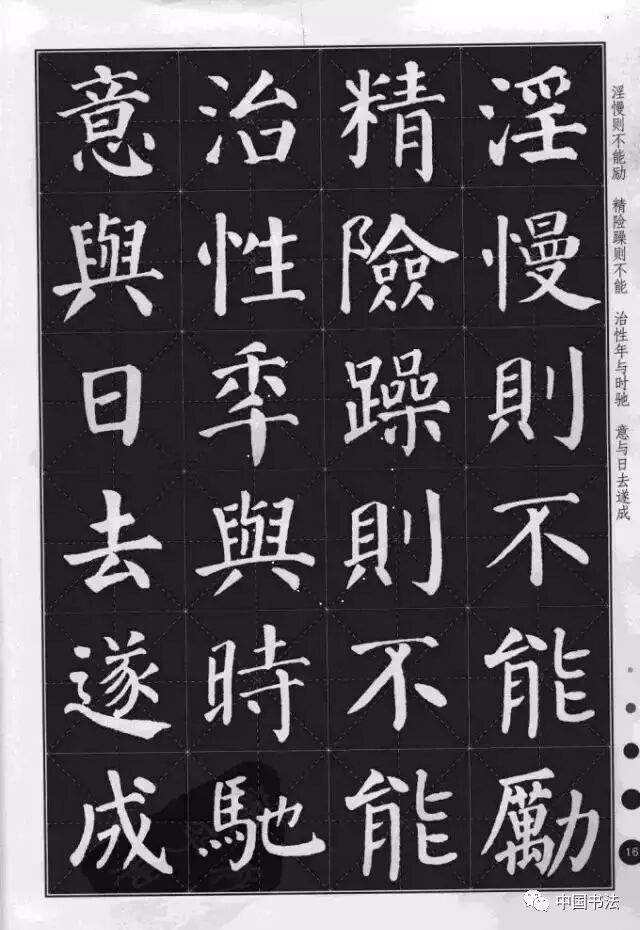 淫慢則不能勵
精險躁則不能
治性年與時馳
意與日去遂成
淫慢则不能励 精险躁则不能 治性年与时驰 意与日去遂成
16
中国书法